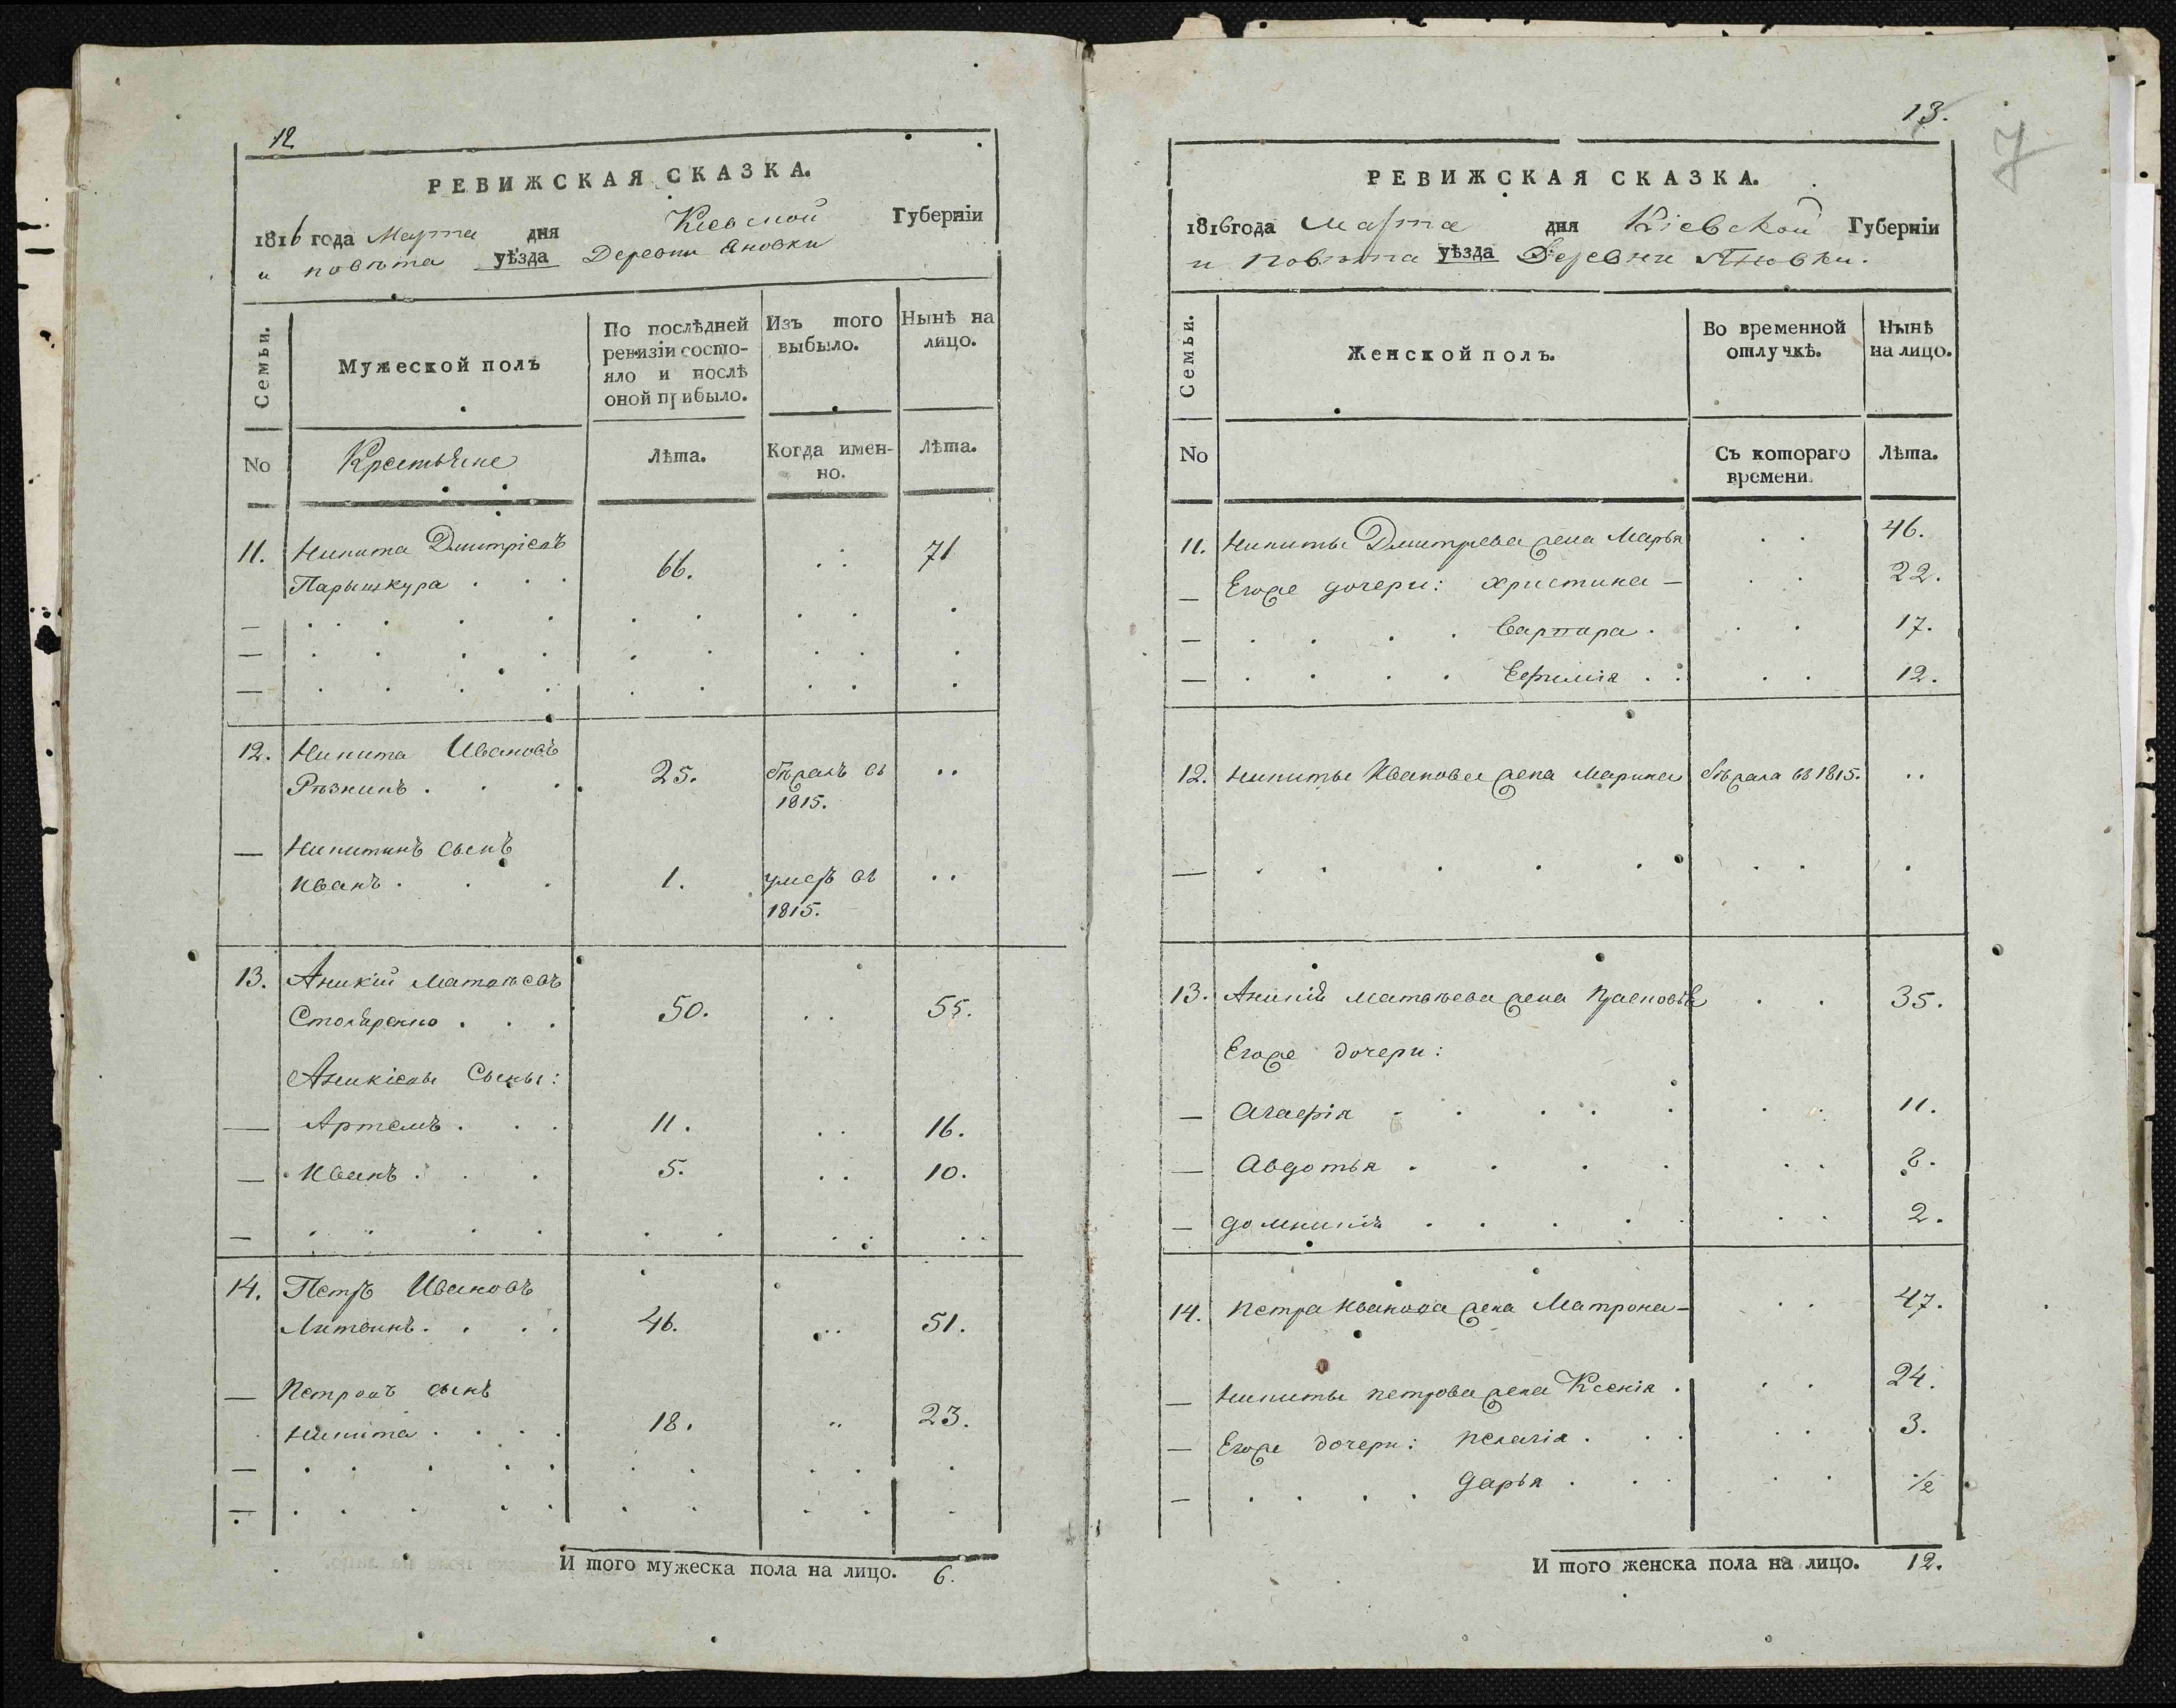 12
РЕВИЖСКАЯ СКАЗКА.
1816 года Марта дня Кіевской Губерніи
и повѣта уѣзда Деревни Яновки
Семьи.
Мужеской полъ
По послѣдней ревизіи состояло и послѣ оной прибыло.
Изъ того выбыло.
Нынѣ на лицо.
No
Крестьяне
Лѣта.
Когда именно.
Лѣта.
11. Никита Дмитріевъ
Парыщкура . . . 66. . . 71
12. Никита Ивановъ
Рѣзникъ . . . 25. бѣжалъ въ 1815. . .
— Никитинъ сынъ
Иванъ . . . 1. умеръ въ 1815. . .
13. Аникій Матвѣевъ
Столяренко . . . 50. . . 55.
Аникіевы Сыны:
— Артемъ . . . 11. . . 16.
— Иванъ . . . 5. . . 10.
14. Петръ Ивановъ
Литвинъ . . . . 46. . . 51.
— Петровъ сынъ
Никита . . . . 18. . . 23.
И того мужеска пола на лицо. 6.
13.
7
РЕВИЖСКАЯ СКАЗКА.
1816 года Марта дня Кіевской Губерніи
и повѣта уѣзда Деревни Яновки.
Семьи.
Женской полъ.
Во временной отлучкѣ.
Нынѣ на лицо.
No
Съ котораго времени.
Лѣта.
11. Никиты Дмитрева жена Марья . . 46.
— Егоже дочери: Христина — . . 22.
— . . . . Варвара . . . 17.
— . . . . Ефимія . . . . 12.
12. Никиты Иванова жена Марина бѣжала въ 1815. . .
13. Аникія Матвѣева жена Прасковья . . 35.
Егоже дочери:
— Агафія . . . . . . 11.
— Авдотья . . . . . . 8.
— Домникія . . . . . . 2.
14. Петра Иванова жена Матрона — . . 47.
— Никиты Петрова жена Ксенія . . . 24.
— Егоже дочери: Пелагія . . . . 3.
— . . . . Дарья . . . . ½
И того женска пола на лицо. 12.